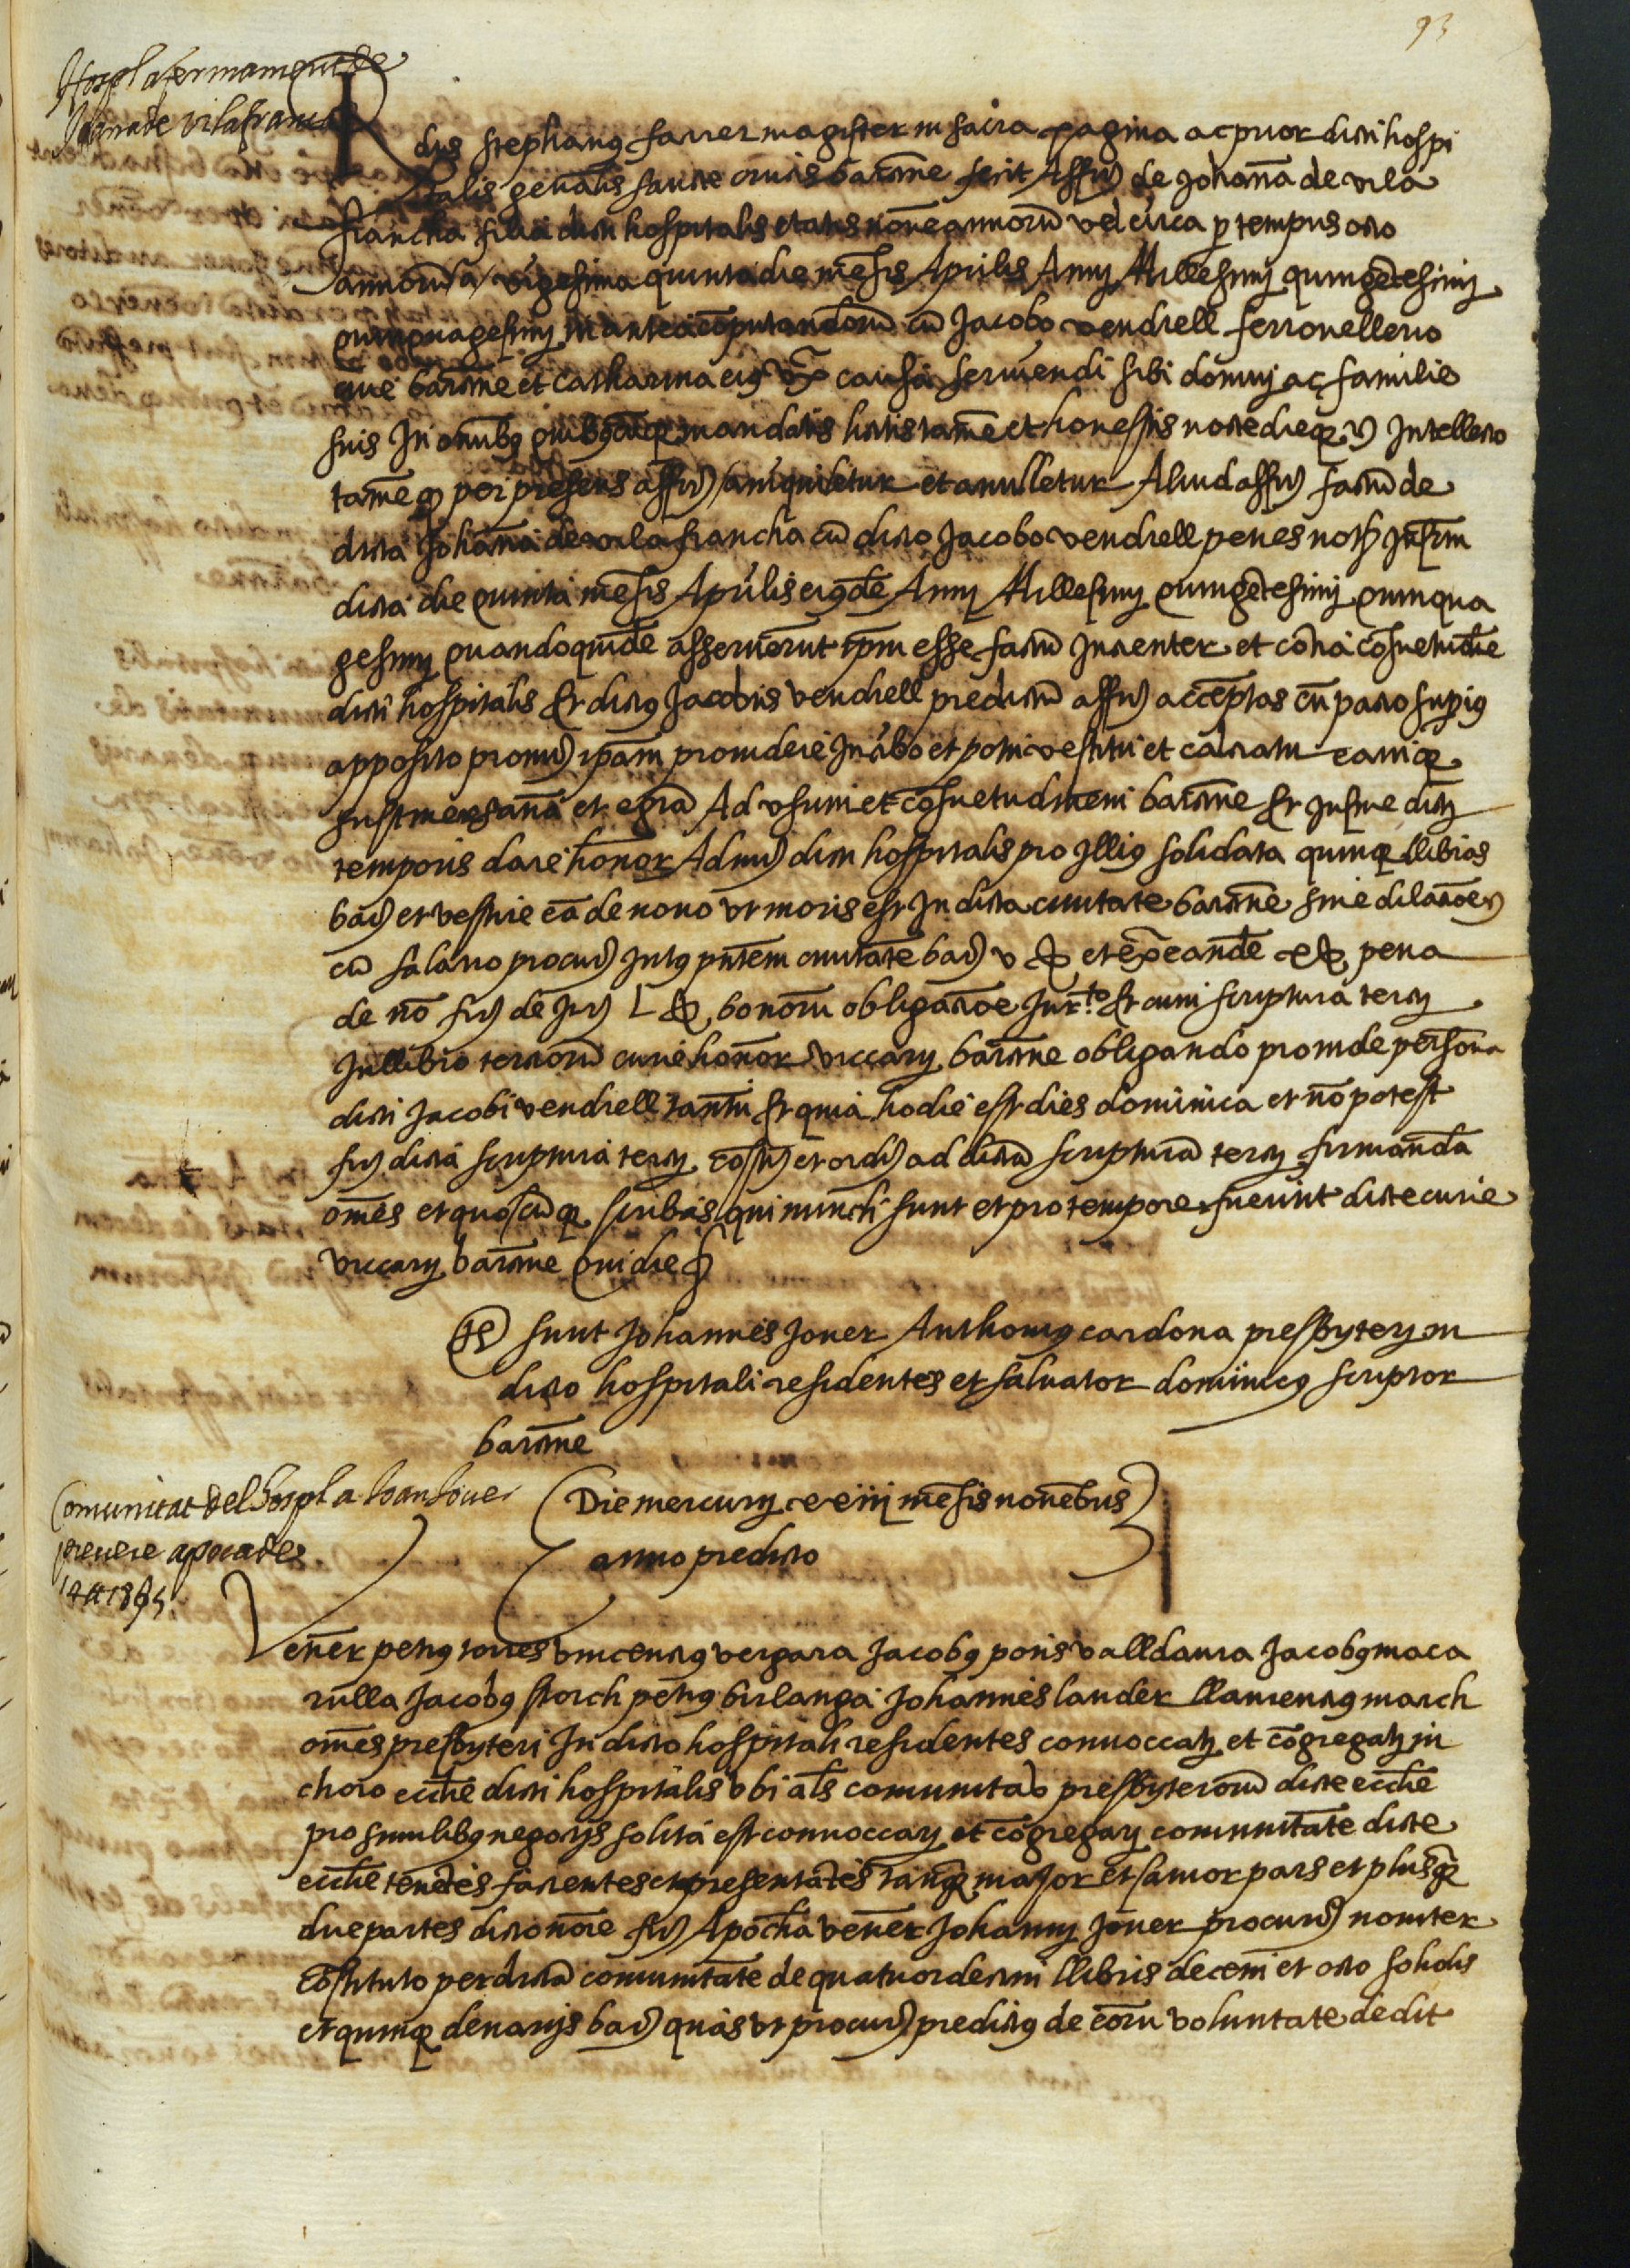 93
Hospl afermament de
Joanna de vilafranca
Rdus stephanus farrer magister in sacra pagina ac prior dicti hospi
talis genālis sancte crucis barcīne fecit affir) de Johanna de vila
francha filia dicti hospitalis etatis nove annorū vel circa p tempus octo
annorū a vigesima quinta die mēsis Aprilis Anny Millesimj quingētesimj
quinquagesimj in antea cōputandorū cū Jacobo vendrell ferrovellerio
cive barcīne et Catharina eius vx causa serviendi sibi domuj ac familie
suis In omībus quibuscūq mandatis licitis tamē et honestis nocte dieq Intellecto
tamē q per presens affir) aniquiletur et anulletur Aliud affir) factū de
dicta Johāna de vila francha cū dicto Jacobo vendrell penes noth Infrm
dicta die quinta mēsis Aprilis eiusdē Anny Millesimj quingētesimj quinqua
gesimj quandoquidē asseruerūt ipm esse factū Inaenter et cōtra cōsuetudīe
dicti hospitalis Et dictus Jacobus vendrell predictū affir) acceptās cū pacto supius
apposito promi) ipam providere In cibo et potu vestitu et calciatu eamq
sustinere sanā et egrā Ad usum et cōsuetudinem barcīne Et In fine dictj
temporis dare honor Admi) dicti hospitalis pro Illius solidata quinq llibras
bar) et vestire eā de novo ut moris est In dicta civitate barcīne sine dilacōe)
cū salario procur) Intus pntem civitatē bar) v ß et ex eandē x ß pena
de nō fir) de Jur) L ß bonorū obligacōe Jur.to Et cum scriptura tercij
In llibro terciorū curie honor viccarij barcīne obligando proinde persona
dicti Jacobi vendrell tantū Et quia hodie est dies dominica et nō potest
fir) dicta scriptura tercij cōst) et ordi) ad dictā scripturā tercij firmandā
omēs et quoscūq scribas qui nunch sunt et pro tempore fuerint dicte curie
viccarij barcīne qui die ß
Ts sunt Johannes Jover Anthonius cardona presbyterj in
dicto hospitali residentes et salvator dominicus scriptor
barcīne
Comunitat del hospl a Joan Jover
prevere apoca de
14 ll 18 ß 5.
Die mercurij xxiiij mēsis novēbris
anno predicto
Vener petrus torres vincentius vergara Jacobus pons valldaura Jacobus maca
rulla Jacobus storch petrus birlanga Johannes lauder llaurentius march
omēs presbyteri In dicto hospitali residentes convoccatj et cōgregatj in
choro ecctie dicti hospitalis ubi als comunitas presbyterorū dicte ecctie
pro similibus negocijs solita est convoccarj et cōgregarj comunitatē dicte
ecctie tenētes facientes et representātes tanq major et sanior pars et plusq
due partes dicto nōie fir) Apocha vener Johannj Jover procur) noviter
cōstituto per dictā comunitatē de quatuordecim llibris decem et octo solidis
et quinq denarijs bar) quas ut procur) predictus de eorū voluntate dedit